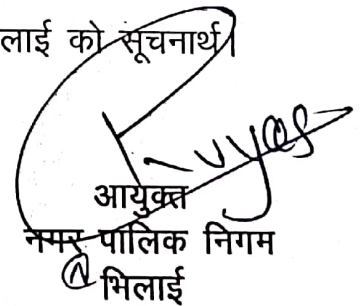 लाई को सूचनार्थ।
vyas
आयुक्त
नगर पालिक निगम
भिलाई